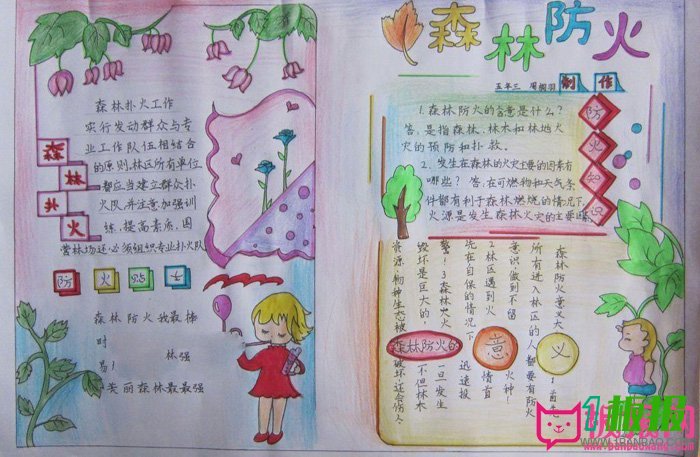 森林防火
五年三
制作
森林扑火工作
实行发动群众与专
业工作队伍相结合
的原则。林区所有单位
都应当建立群众扑
火队并注意加强训
练,提高素质,国
营林场还必须组织专业扑火队
森林扑火
防火
森林防火我最棒
时 林强
易!
美丽森林最最强
1.森林防火的含意是什么?
答,是指森林、林木和林地火
灾的预防和扑救。
2、发生在森林的火灾主要的因素有
哪些? 答、在可燃物和天气条
件都有利于森林燃烧的情况下,
火源是发生森林火灾的主要因
防火知识
森林防火意义大
所有进入林区的人都要有防火
意识做到不留火种!
2林区遇到火情首
先在自保的情况下迅速报
警!3森林火火一旦发生
毁坏是巨大的,不但林木
资源、物种生态被破坏还会伤人。
森林防火的
意
义
www.1banbao.com